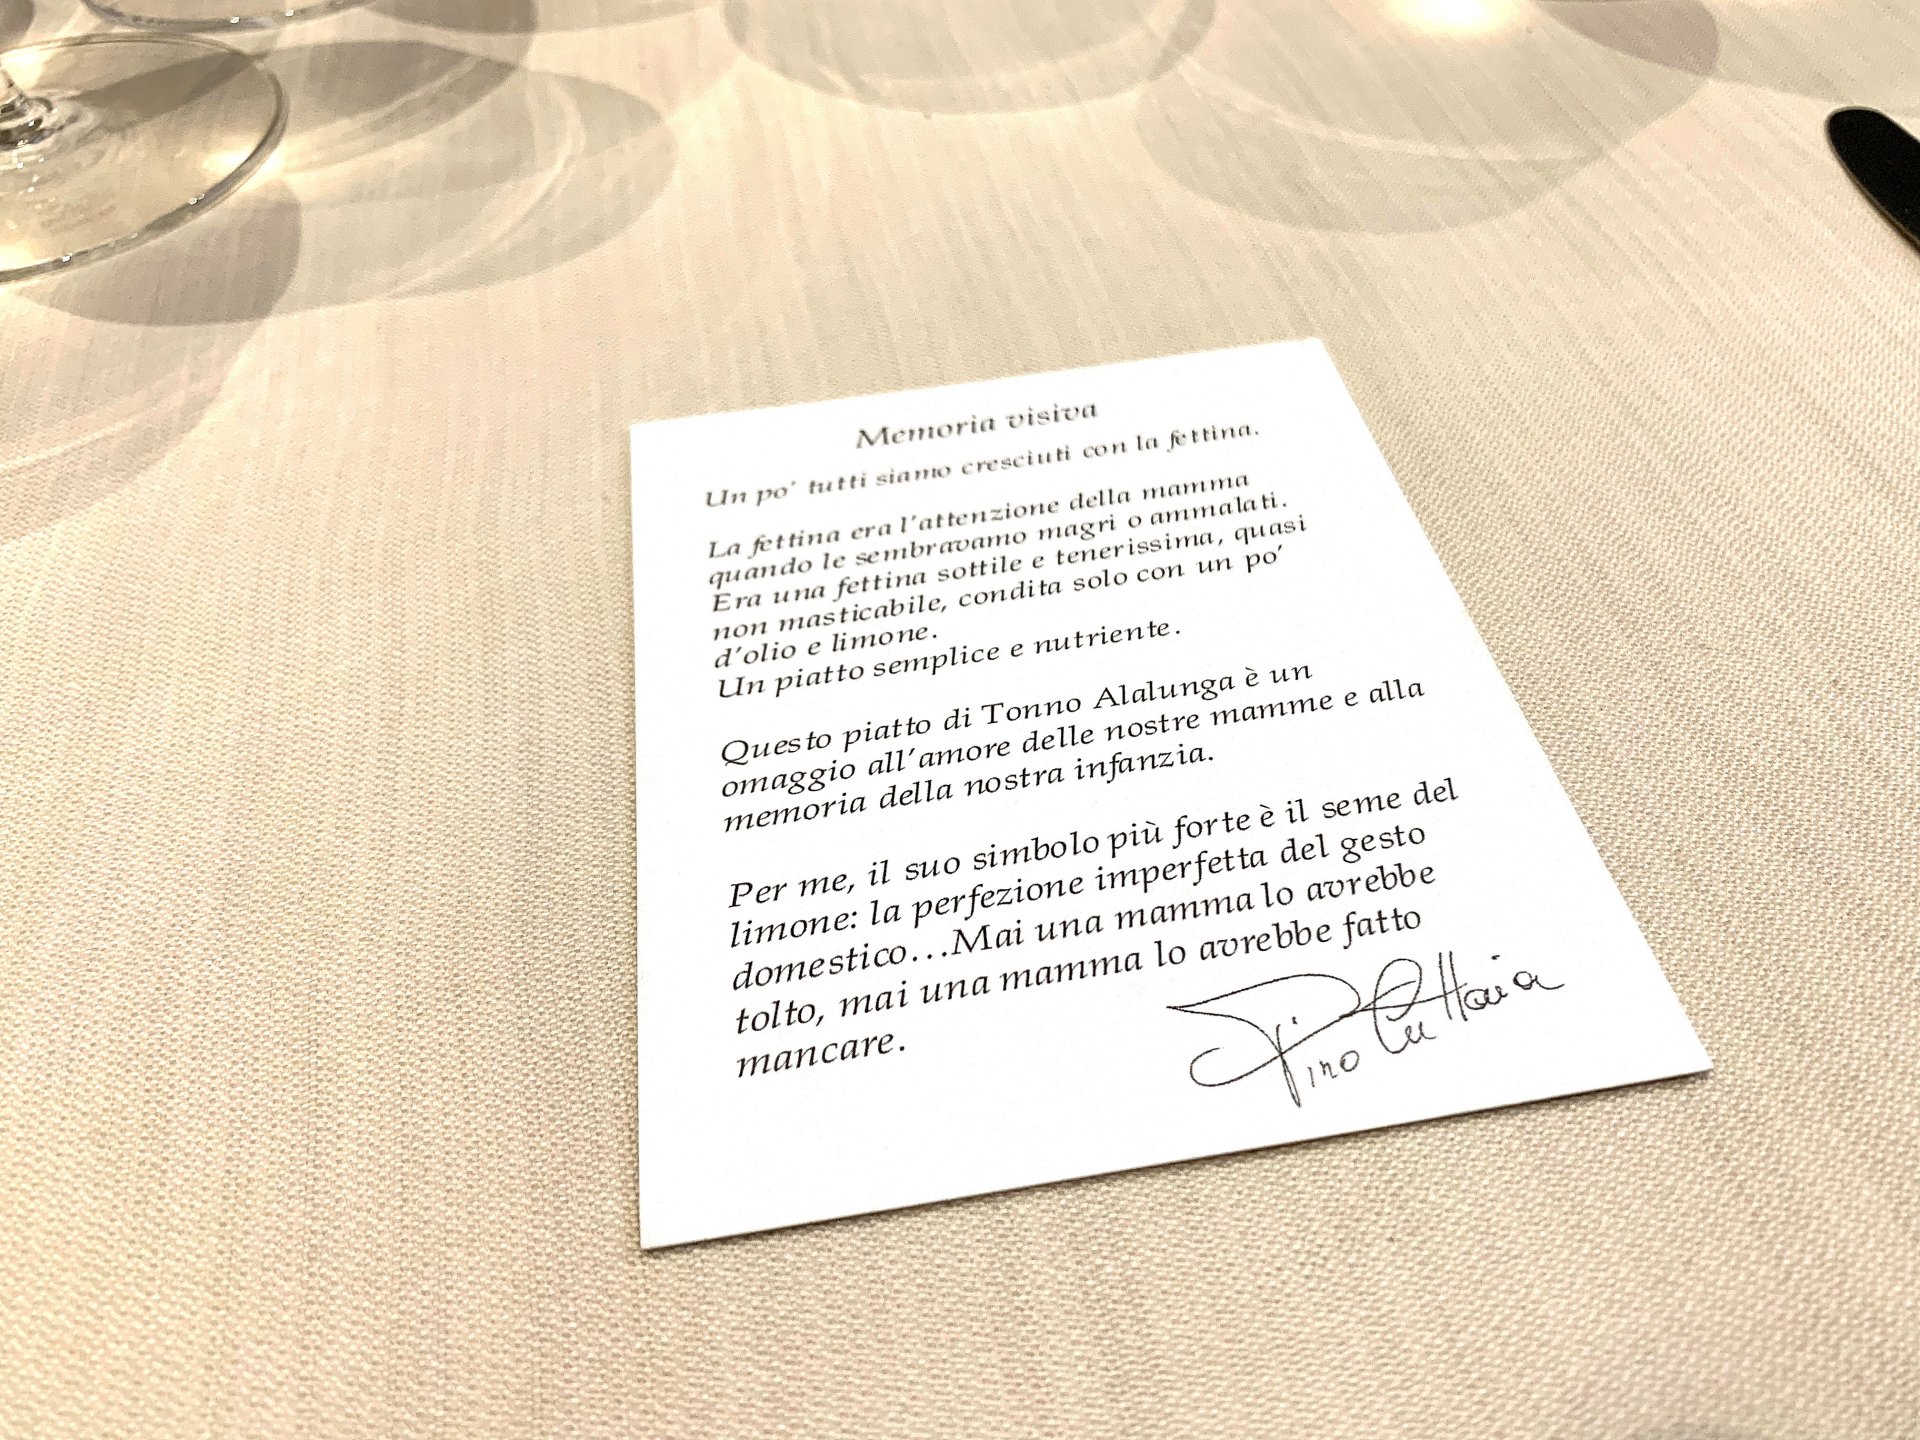 Memoria visiva
Un po' tutti siamo cresciuti con la fettina.
La fettina era l'attenzione della mamma
quando le sembravamo magri o ammalati.
Era una fettina sottile e tenerissima, quasi
non masticabile, condita solo con un po'
d'olio e limone.
Un piatto semplice e nutriente.
Questo piatto di Tonno Alalunga è un
omaggio all'amore delle nostre mamme e alla
memoria della nostra infanzia.
Per me, il suo simbolo più forte è il seme del
limone: la perfezione imperfetta del gesto
domestico...Mai una mamma lo avrebbe
tolto, mai una mamma lo avrebbe fatto
mancare.
Pino Cuttaia